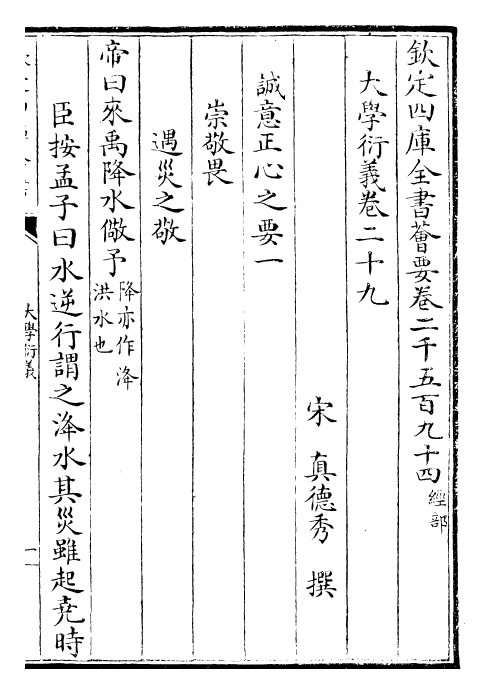 欽定四庫全書薈要卷二千五百九十四經部
大學衍義卷二十九
宋 真德秀 撰
誠意正心之要一
崇敬畏
遇災之敬
帝曰來禹降水儆予降亦作洚洪水也
臣按孟子曰水逆行謂之洚水其災雖起堯時
大學衍義
一